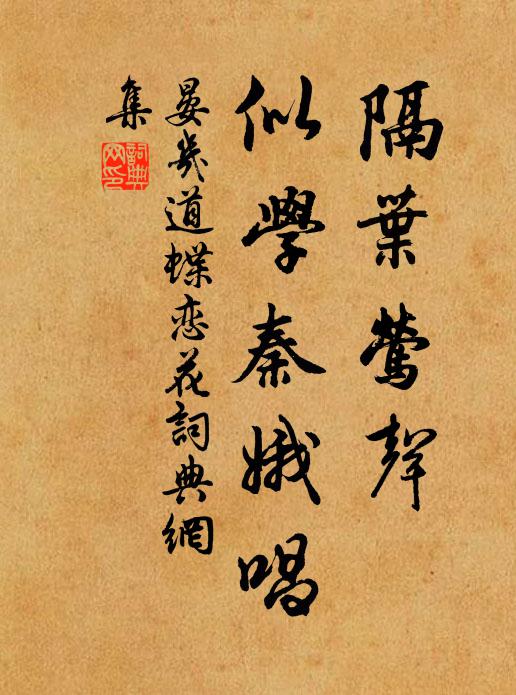 隔葉鶯聲
似學秦娥唱
晏幾道蝶恋花詞典網
集
詞典网印